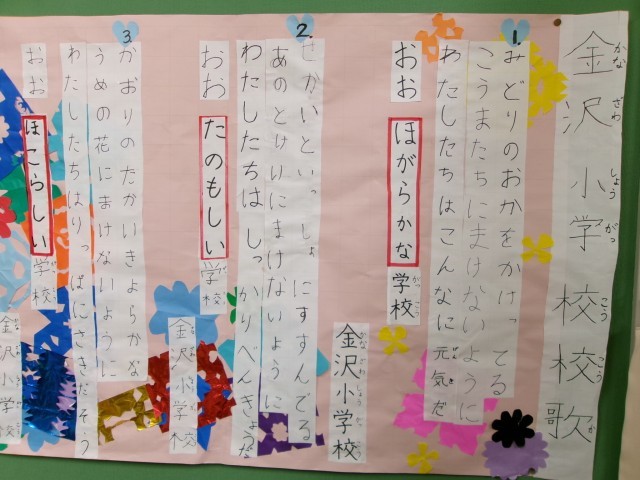 金沢小学校校歌
かなざわしょうがっこうこうか
1.
みどりのおかをかけってる
こうまたちにまけないように
わたしたちはこんなに元気だ
おお ほがらかな 学校
金沢小学校
2.
せかいといっしょにすすんでる
あのとけいにまけないように
わたしたちはしっかりべんきょうだ
おお たのもしい 学校
金沢小学校
3.
かおりのたかいきよらかな
うめの花にまけないように
わたしたちはりっぱにさきだそう
おお ほこらしい 学校
金沢小学校